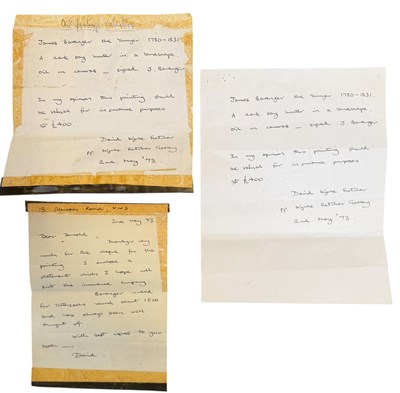 James Barenger the Younger 1780-1831
A dark bay hunter in a landscape.
oil on canvas — signed J. Barenger
In my opinion this painting should
be valued for insurance purposes
@ £400
David Wynne
PP Wynne Gallery
2nd May '73
NW3
2nd May '73
Dear Donald,
Thank you very
much for the cheque for the
painting. I enclose a
statement which I hope will
suit the insurance company.
Barenger worked
for Tattersalls until about 1820
and has always been well
thought of.
With best wishes to you
both —
David
James Barenger the Younger 1780-1831
A dark bay hunter in a landscape.
oil on canvas — signed J. Barenger
In my opinion this painting should
be valued for insurance purposes
@ £400
David Wynne
PP Wynne Gallery
2nd May '73